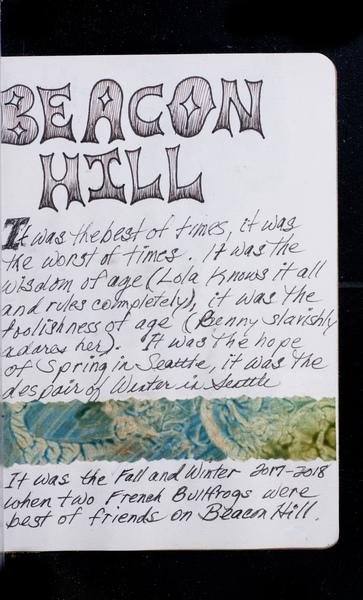 BEACON
HILL
It was the best of times, it was
the worst of times. It was the
wisdom of age (Lola Knows it all
and rules completely), it was the
foolishness of age (Benny slavishly
adores her). It was the hope
of Spring in Seattle, it was the
despair of Winter in Seattle
It was the Fall and Winter 2017-2018
when two French Bullfrogs were
best of friends on Beacon Hill.